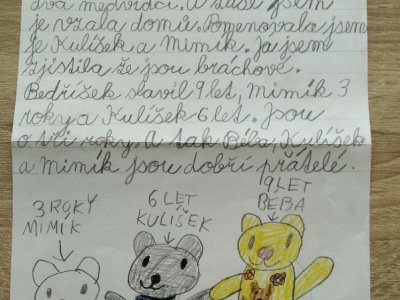 dva medvídci. A zase jsem
je vzala domů. Pomenovala jsem
je Kulíšek a Mimík. Ja jsem
zjistila že jsou bráchové.
Bedříšek slavil 9 let, Mimík 3
roky a Kulíšek 6 let. Jsou
o tři roky. A tak Béba, Kulíšek
a Mimík jsou dobří přátelé.
3 ROKY
MIMÍK
6 LET
KULÍŠEK
9 LET
BÉBA